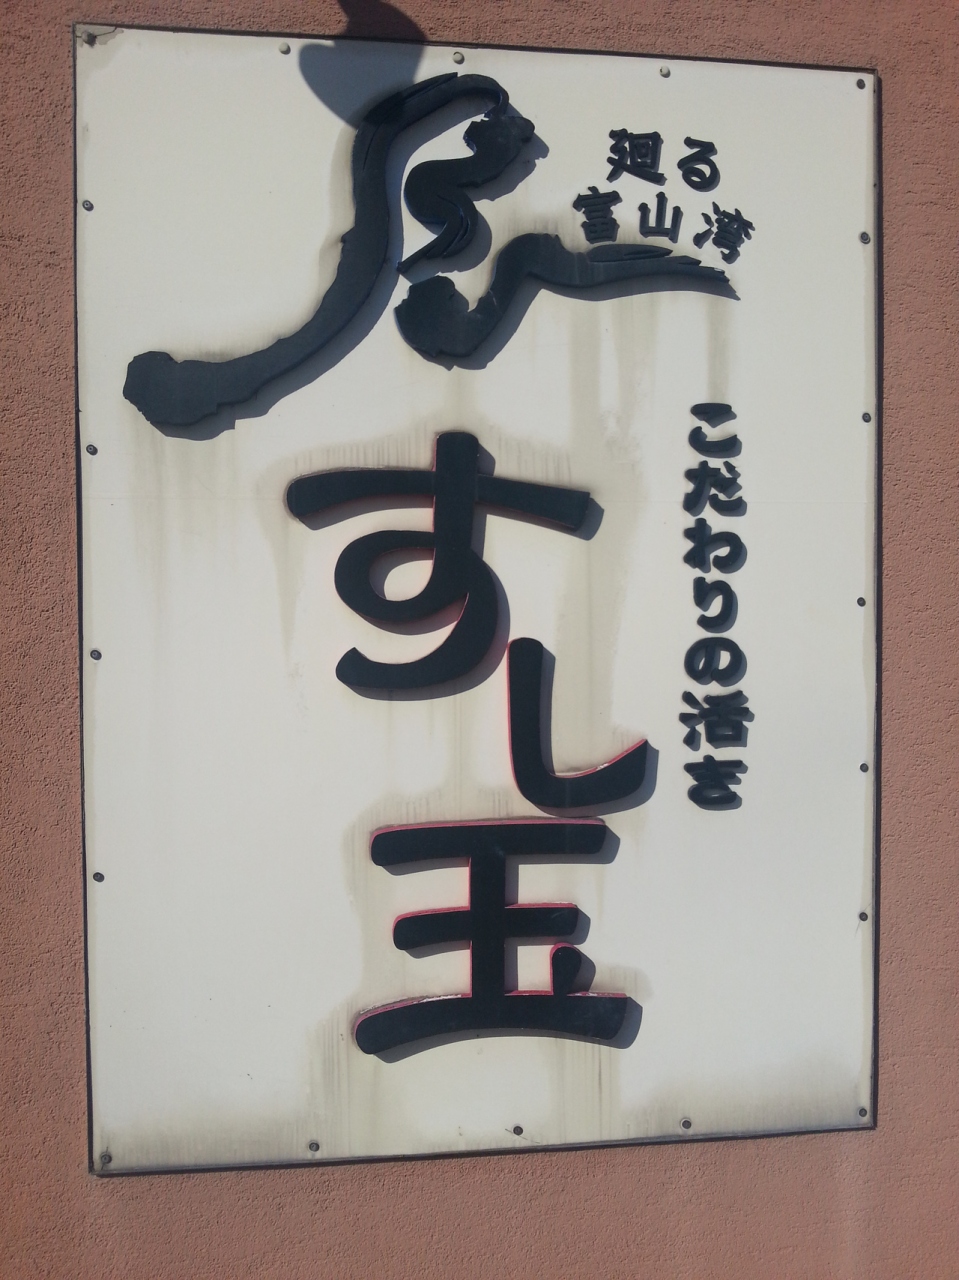 廻る
富山湾
こだわりの活き
すし玉